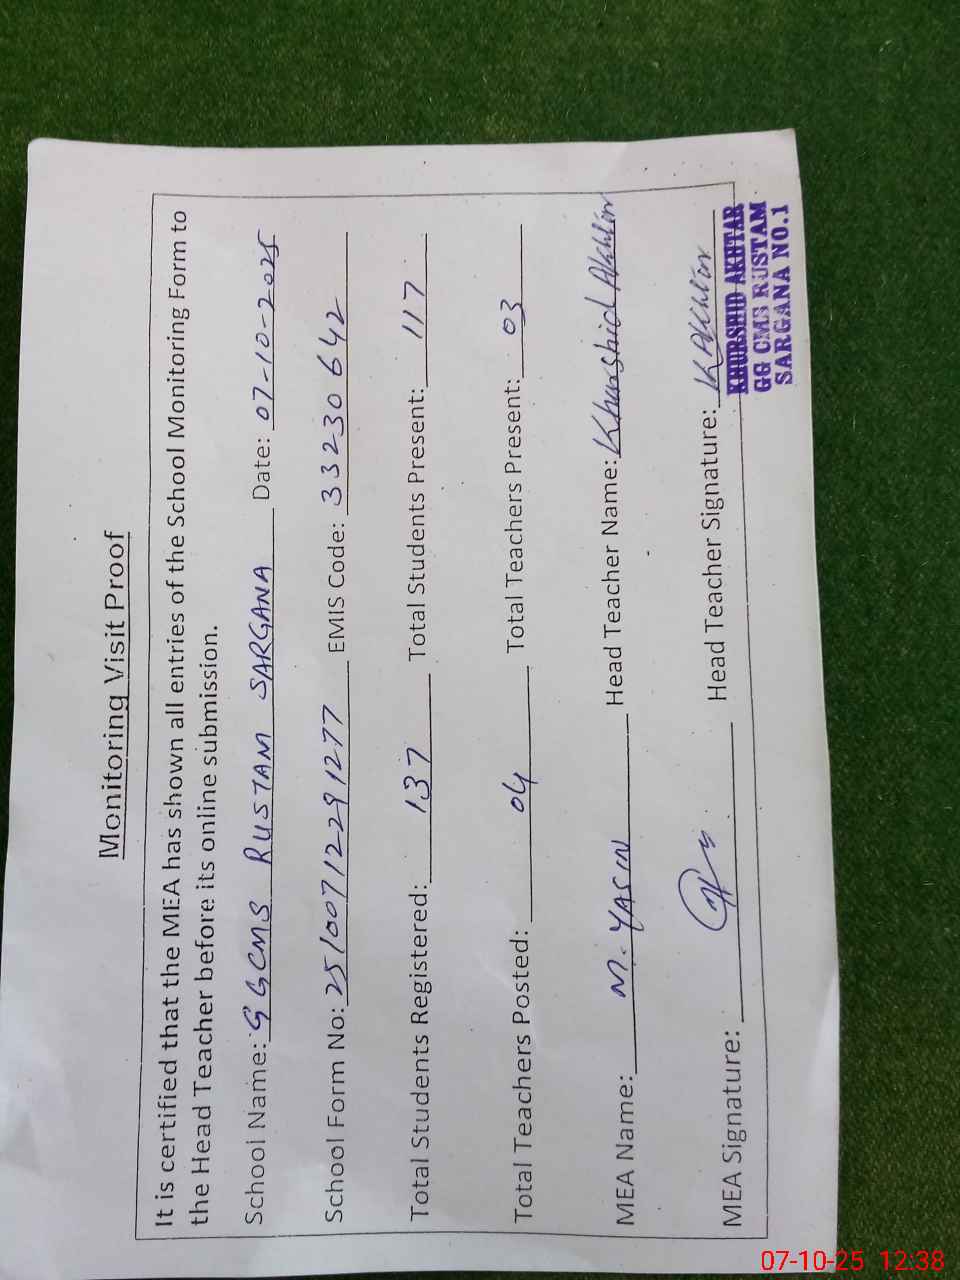 Monitoring Visit Proof
It is certified that the MEA has shown all entries of the School Monitoring Form to
the Head Teacher before its online submission.
School Name: GGCMS RUSTAM SARGANA Date: 07-10-2025
School Form No: 251007122291277 EMIS Code: 33230642
Total Students Registered: 137 Total Students Present: 117
Total Teachers Posted: 04 Total Teachers Present: 03
MEA Name: M. YASIN Head Teacher Name: Khurshid Akhtar
MEA Signature: Head Teacher Signature: K Akhtar
KHURSHID AKHTAR
GG CMS RUSTAM
SARGANA NO.1
07-10-25 12:38